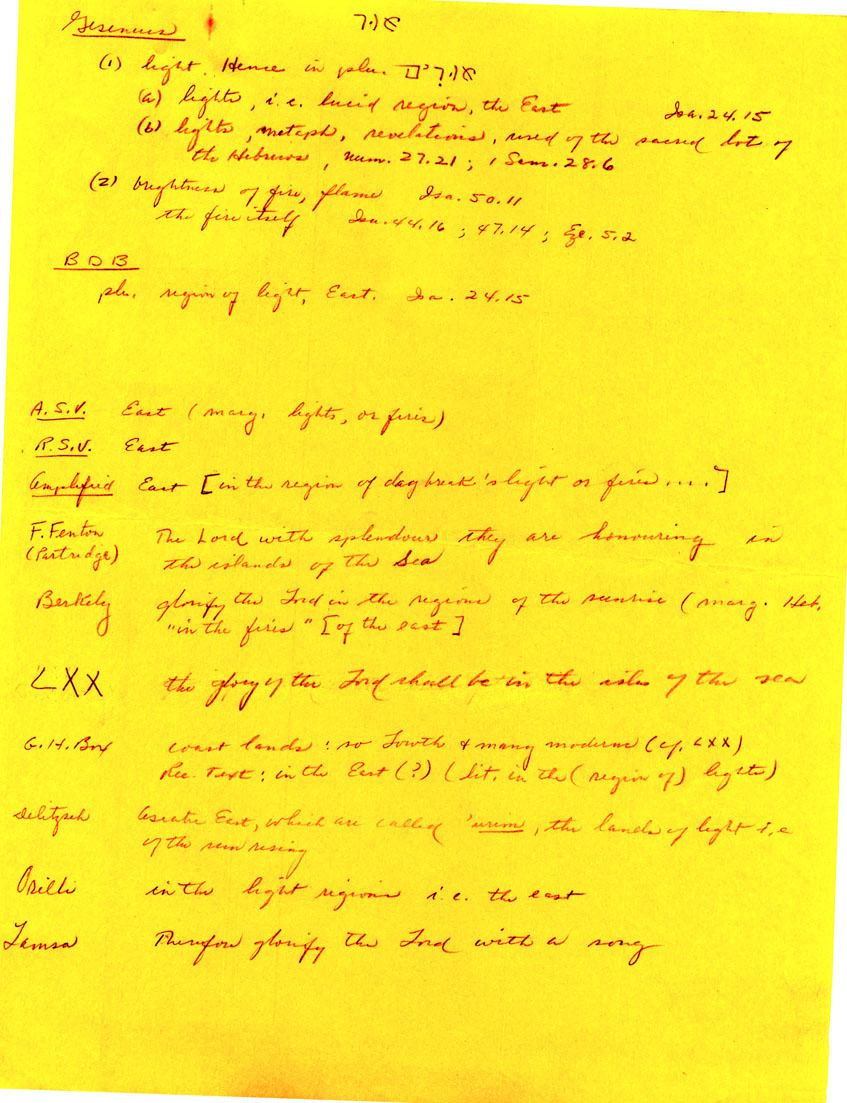 Gesenius אוּר
(1) light. Hence in plu. אוּרִים
(a) lights, i.e. lucid region, the East Isa. 24.15
(b) lights, metaph, revelations, used of the sacred lot of
the Hebrews, Num. 27.21; 1 Sam. 28.6
(2) brightness of fire, flame Isa. 50.11
the fire itself Isa. 44.16; 47.14; Eze. 5.2
BDB
plu. region of light, East. Isa. 24.15
A.S.V. East (marg. lights, or fires)
R.S.V. East
Amplified East [in the region of daybreak's light or fires....]
F. Fenton The Lord with splendour they are honouring in
(Partridge) the islands of the Sea
Berkely glorify the Lord in the regions of the sunrise (marg. Heb.
"in the fires" [of the east]
LXX the glory of the Lord shall be in the isles of the sea
G.H. Box coast lands: so Lowth & many moderns (cf. LXX)
Rec. Text: in the East (?) (lit. in the (region of) lights)
Delitzsch Asiatic East, which are called 'urim, the lands of light i.e
of the sun rising
Orelli in the light regions i.e. the east
Lamsa Therefore glorify the Lord with a song